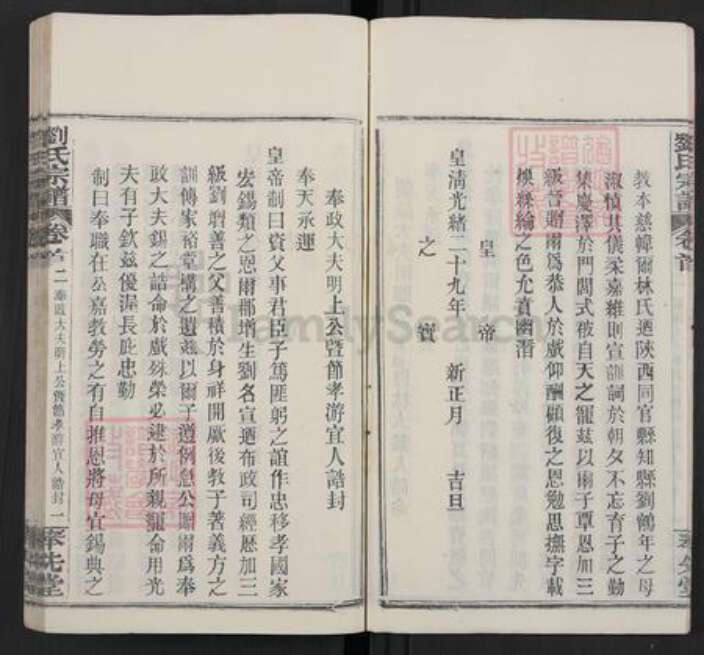 劉氏宗譜 卷首
教本慈幃爾林氏迺陝西同官縣知縣劉鶴年之母
淑慎其儀柔嘉維則宣訓詞於朝夕不忘育子之勤
集慶澤於門閭式被自天之寵茲以爾子覃恩加三
級晉贈爾爲恭人於戲仰酬顧復之恩勉思撫字載
煥絲綸之色允賁幽潛
皇帝
皇淸光緒二十九年 新正月 吉旦
之 寳
奉政大夫明上公曁節孝游宜人誥封
奉天承運
皇帝制曰資父事君臣子篤匪躬之誼作忠移孝國家
宏錫類之恩爾郡增生劉名宣迺布政司經歷加三
級劉 善之父善積於身祥開厥後教子著義方之
訓傳家裕堂構之遺茲以爾子遵例急公貤爾爲奉
政大夫錫之誥命於戲殊榮必逮於所親寵命用光
夫有子欽茲優渥長庇忠勤
制曰奉職在公嘉教勞之有自推恩將母宜錫典之
劉氏宗譜 卷首 二 奉政大夫明上公曁節孝游宜人誥封 一 奉先堂
FamilySearch